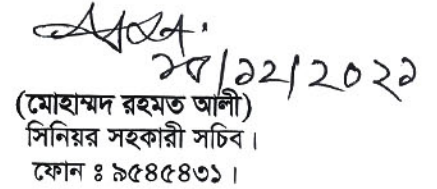 ২৮/১২/২০২১
(মোহাম্মদ রহমত আলী)
সিনিয়র সহকারী সচিব।
ফোন ঃ ৯৫৪৫৪৩১।